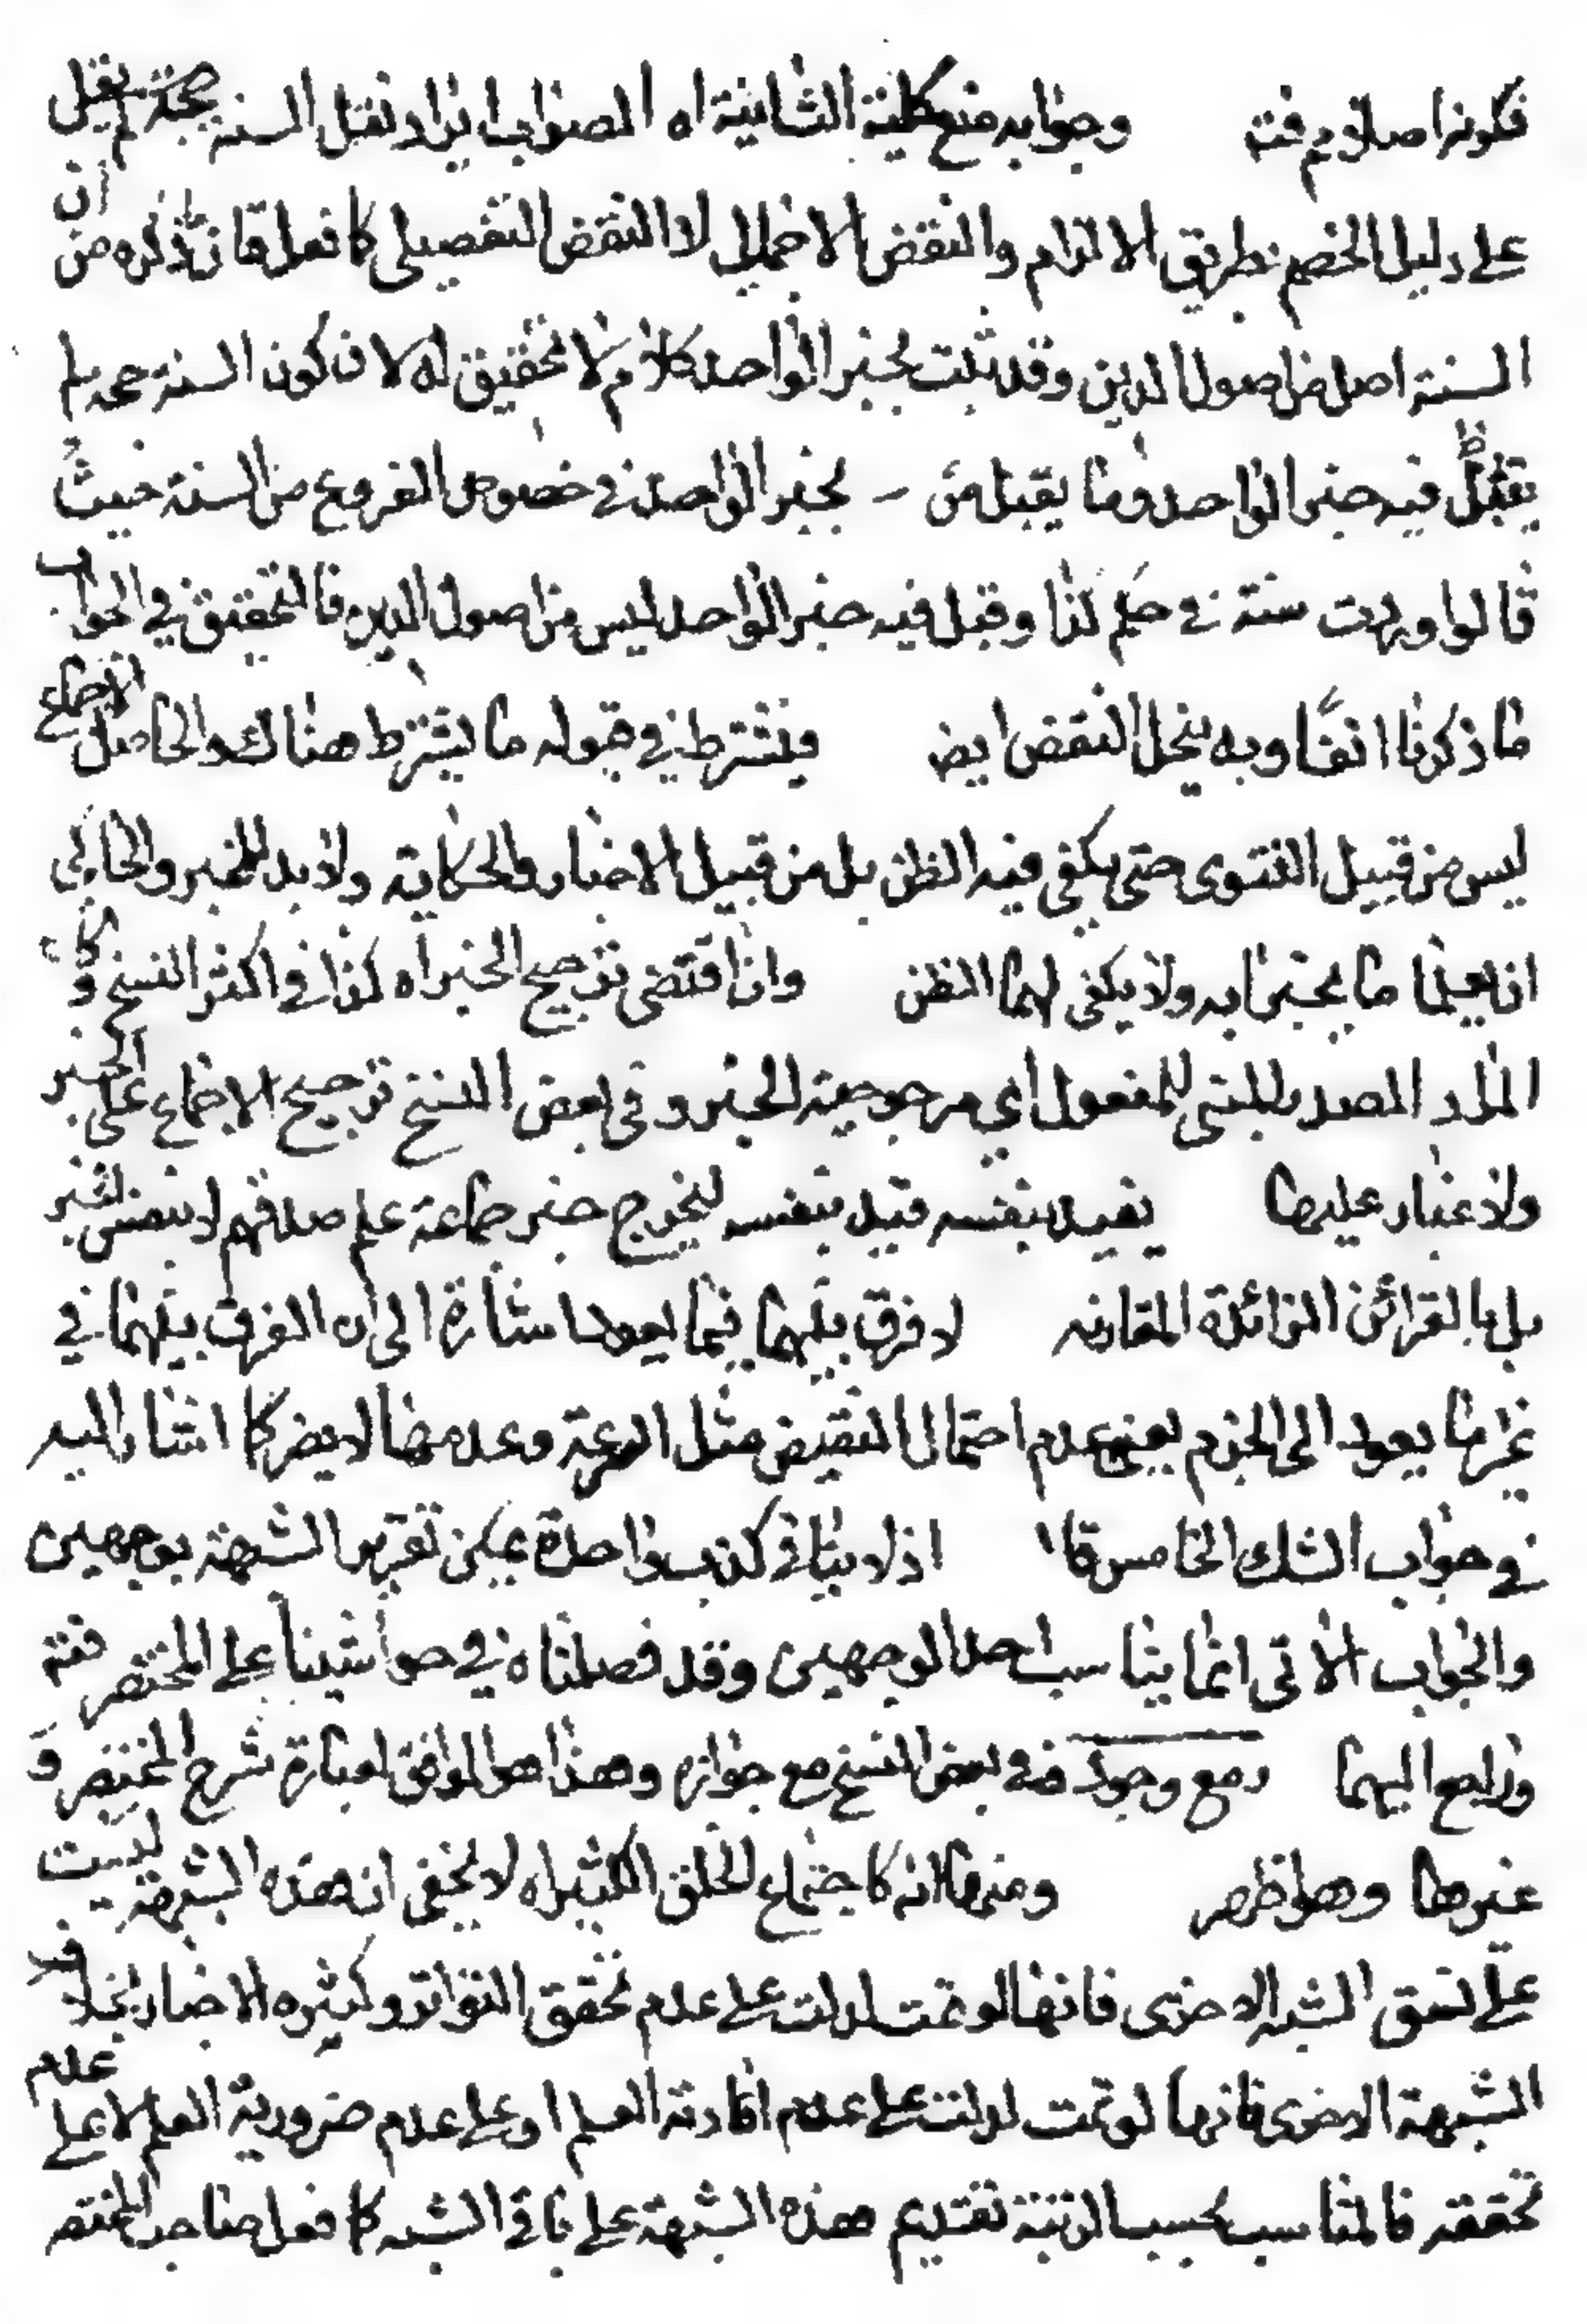 فكونها اصلا م فته وجوابه منع كلية الثانية اه الصواب ايراد نقل السنة بصحة لم يقبل
على دليل الخصم بطريق الالزام والنقض الاجمالي لا النقض التفصيلي كما فعل فان ما ذكره من ان
السنة اصل من اصول الدين وقد ثبت بخبر الواحد كلام لا تحقيق له لان كون السنة حجة
يقبل فيه خبر الواحد وما يقبل من بخبر الواحد في خصوص الفروع من السنة حيث
قالوا وردت سنة في حكم كذا وقبل فيه خبر الواحد ليس من اصول الدين فالتحقيق في الجواب
ما ذكرنا انفا وبه ينحل النقض ايض فيشترط في قبوله ما يشترط هناك والحاصل الاجماع
ليس من قبيل الفتوى حتى يكفي فيه الظن بل من قبيل الاخبار والحكاية ولا بد للمخبر والحاكي
ان يعلما ما يخبرا به ولا يكفي لهما الظن وان اقتضى ترجيح الخبر اه كذا في اكثر النسخ وكان
المراد المصدر المبني للمفعول اي مرجوحية الخبر وفي بعض النسخ ترجيح الاجماع على الخبر
ولا غبار عليها يفيد بنفسه قيد بنفسه ليخرج خبر جماعة علم صدقهم لا بنفس الخبر
بل بالقرائن الزائدة المقارنه لا فرق بينهما فيما يعود اشارة الى ان الفرق بينهما في
غير ما يعود الى الجزم يعني عدم احتمال النقيض مثل السرعة وعدمها لا يضر كما اشار اليه
في جواب الشك الخامس اذ لا ينافي كذب واحدة يمكن تقرير الشبهة بوجهين
والجواب الاتى انما يناسب احد الوجهين وقد فصلناه في حواشينا على المختصر فته
وراجع اليهما ومع وجود في بعض النسخ مع جوازه وهذا هو الموافق لعبارة شرح المختصر و
غيرها وهو اظهر ومنها انه كاجتماع الخلق الكثير اه لا يخفى ان هذه الشبهة ليست
على نسق الشبه الاخرى فانها لو تمت لدلت على عدم تحقق التواتر وكثيره الاخبار بخلاف
الشبهة الاخرى فانها لو تمت لدلت على عدم افادته العلم او على عدم ضرورية العلم لا على عدم
تحققه فالمناسب بحسب الرتبة تقديم هذه الشبهة على باقي الشبه كما فعل صاحب المختصر